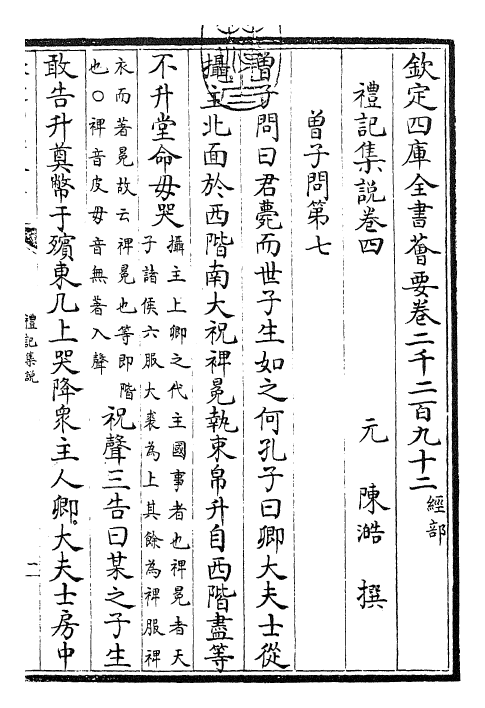 欽定四庫全書薈要卷二千二百九十二 經部
禮記集說卷四
元 陳澔 撰
曾子問第七
曾子問曰君薨而世子生如之何孔子曰卿大夫士從
攝主北面於西階南大祝裨冕執束帛升自西階盡等
不升堂命毋哭
攝主上卿之代主國事者也裨冕者天
子諸侯六服大裘為上其餘為裨服裨
衣而著冕故云裨冕也等即階
也○裨音皮毋音無著入聲
祝聲三告曰某之子生
敢告升奠幣于殯東几上哭降衆主人卿大夫士房中
禮記集說